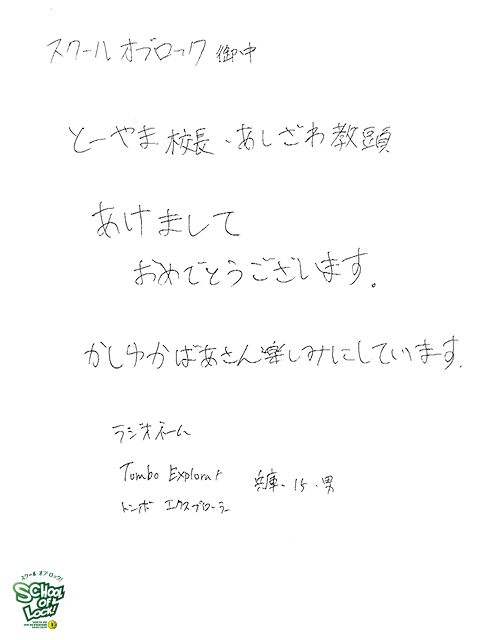 スクール オブ ロック 御中
とーやま校長、あしざわ教頭
あけまして
おめでとうございます。
かしゆかばあさん楽しみにしています.
ラジオネーム
Tombo Explorar
兵庫、15、男
トンボ エクスプローラー
スクール オブ ロック!
SCHOOL
OF
LOCK!